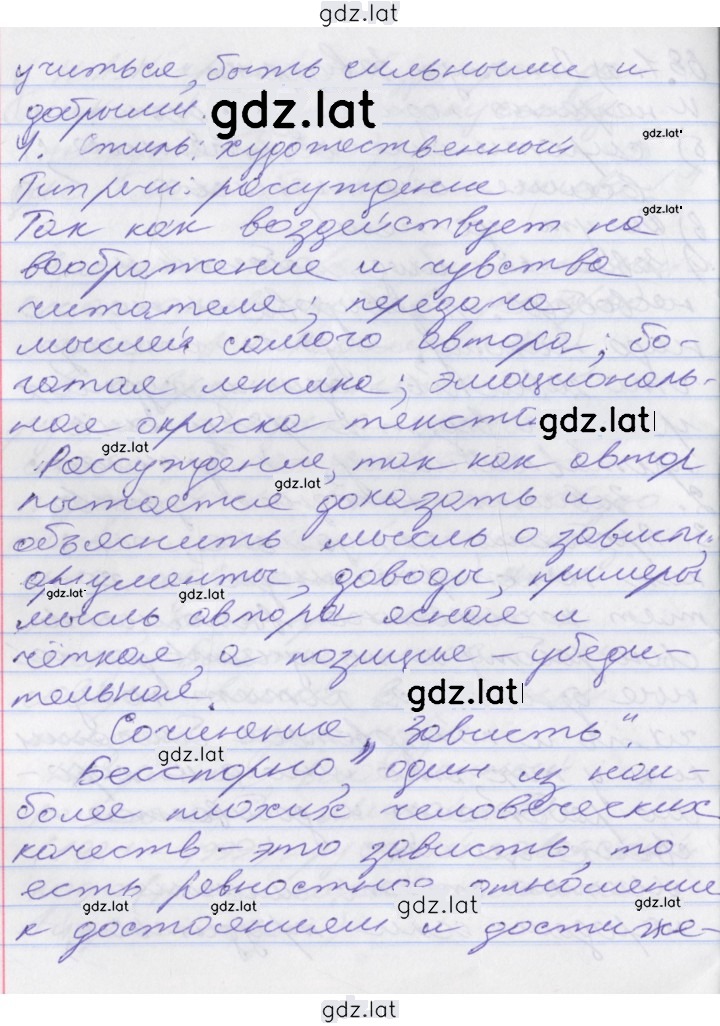 gdz.lat
учиться, быть сильными и
добрыми.
gdz.lat
4. Стиль: художественный
gdz.lat
Тип речи: рассуждение
gdz.lat
Так как воздействует на
воображение и чувства
читателя; передача
мыслей самого автора; бо-
гатая лексика; эмоциональ-
ная окраска текста.
gdz.lat
gdz.lat
Рассуждение, так как автор
gdz.lat
пытается доказать и
объяснить мысль о завист.
аргументы, доводы, примеры,
gdz.lat
gdz.lat
мысль автора ясная и
чёткая, а позиция – убеди-
тельная.
gdz.lat
Сочинение „Зависть“.
gdz.lat
Бесспорно, один из наи-
более плохих человеческих
качеств – это зависть, то
есть ревностное отношение
gdz.lat
gdz.lat
gdz.lat
gdz.lat
к достояниям и достиже-
gdz.lat